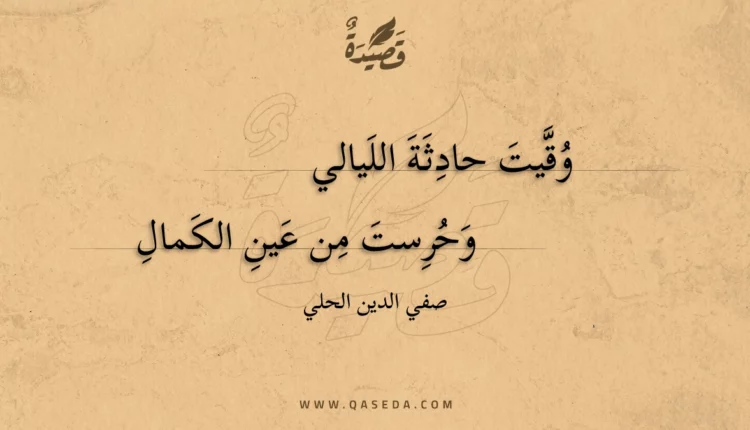 قَصِيدَةٌ
وُقَّيتَ حادِثَةَ اللَيالي
وَحُرِستَ مِن عَينِ الكَمالِ
صفي الدين الحلي
WWW.QASEDA.COM